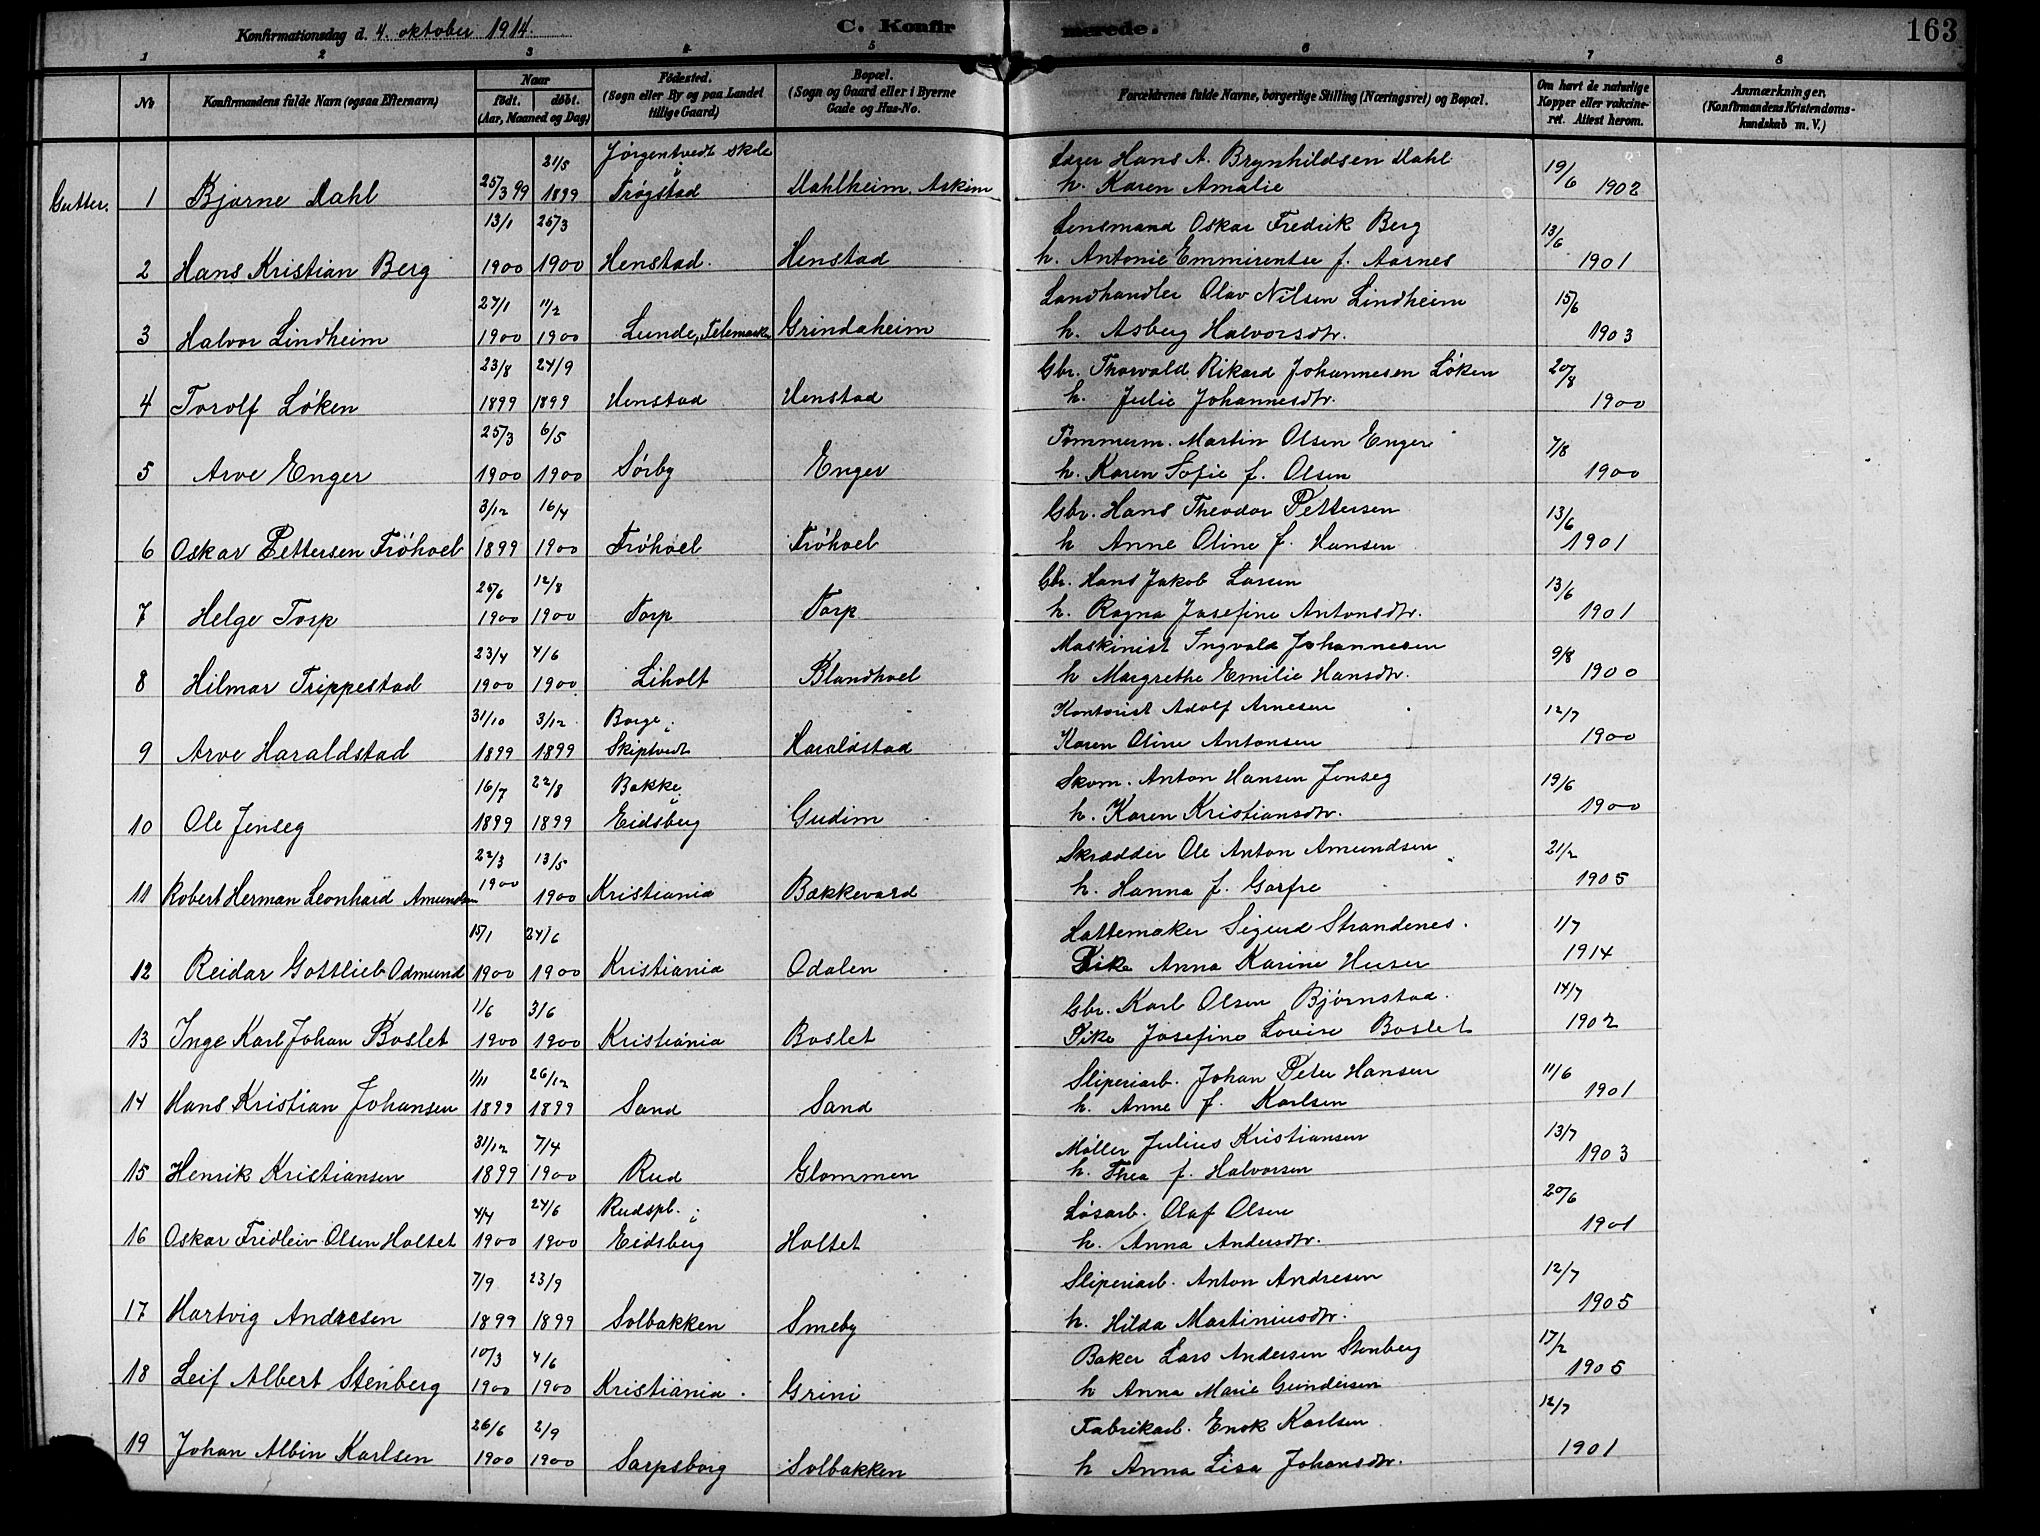 Konfirmationsdag d. 4. oktober 1914.
C. Konfirmerede.
163
1 2 3 4 5 6 7 8
No
Konfirmandens fulde Navn (ogsaa Efternavn)
Naar
født. døbt.
(Aar, Maaned og Dag)
Fødested.
(Sogn eller By og paa Landet
tillige Gaard)
Bopæl.
(Sogn og Gaard eller i Byerne
Gade og Hus-No.
Forældrenes fulde Navne, borgerlige Stilling (Næringsvei) og Bopæl.
Om havt de naturlige
Kopper eller vakcine-
ret. Attest herom.
Anmærkninger.
(Konfirmandens Kristendoms-
kundskab m. V.)
Gutter.
1 Bjarne Dahl 25/3 99 21/5 1899 Jørgentvedt skole i Trøgstad Dahlheim, Askim
Lærer Hans A. Brynhildsen Dahl
h. Karen Amalie 19/6 1902
2 Hans Kristian Berg 13/1 1900 25/3 1900 Henstad. Henstad
Lensmand Oskar Fredrik Berg
h. Antonie Emmirentse f. Aarnes 13/6 1901
3 Halvor Lindheim 27/1 1900 11/2 1900 Lunde, Telemarken Grindaheim
Landhandler Olav Nilsen Lindheim
h. Asberg Halvorsdtr. 15/6 1903
4 Torolf Løken 23/8 1899 24/9 1899 Henstad Henstad
Gbr. Thorvald Rikard Johannesen Løken
h. Julie Johannesdtr. 20/8 1900
5 Arve Enger 25/3 1900 6/5 1900 Sørby Enger
Tømmerm. Martin Olsen Enger
h. Karen Sofie f. Olsen 7/8 1900
6 Oskar Pettersen Frøhoel 3/12 1899 16/4 1900 Frøhoel Frøhoel
Gbr. Hans Theodor Pettersen
h Anne Oline f. Hansen 13/6 1901
7 Helge Torp 25/6 1900 12/8 1900 Torp Torp
Gbr. Hans Jakob Larsen
h. Ragna Josefine Antonsdtr. 13/6 1901
8 Hilmar Trippestad 23/4 1900 4/6 1900 Liholt Blandhoel
Maskinist Ingvald Johannesen
h Margrethe Emilie Hansdtr. 9/8 1900
9 Arve Haraldstad 31/10 1899 3/12 1899 Borge i Skiptvedt Haraldstad
Kontorist Adolf Arnesen
Karen Oline Antonsen 12/7 1900
10 Ole Jenseg 16/7 1899 22/8 1899 Bakke i Eidsberg Gudim
Skom. Anton Hansen Jenseg
h. Karen Kristiansdtr. 19/6 1900
11 Robert Herman Leonhard Amundsen 22/3 1900 13/5 1900 Kristiania Bækkevard
Skrædder Ole Anton Amundsen
h. Hanna f. Garfve 21/2 1905
12 Reidar Gottlieb Odmund 15/1 1900 24/6 1900 Kristiania Odalen
Hattemaker Sigurd Strandenes.
Pike Anna Karine Huser 1/7 1914
13 Inge Karl Johan Boslet 1/6 1900 3/6 1900 Kristiania Boslet
Gbr. Karl Olsen Bjørnstad.
Pike Josefine Lovise Boslet 14/7 1902
14 Hans Kristian Johansen 1/11 1899 26/12 1899 Sand Sand
Sliperiarb. Johan Peter Hansen
h. Anne f. Karlsen 11/6 1901
15 Henrik Kristiansen 31/12 1899 7/4 1900 Rud Glommen
Møller Julius Kristiansen
h. Thea f. Halvorsen 13/7 1903
16 Oskar Fridleiv Olsen Holtet 4/4 1900 24/6 1900 Rudspl. i Eidsberg Holtet
Løsarb. Olaf Olsen
h. Anna Andersdtr. 20/6 1901
17 Hartvig Andresen 7/9 1899 23/9 1899 Solbakken Smeby
Sliperiarb. Anton Andresen
h. Hilda Martiniusdtr. 12/7 1905
18 Leif Albert Stenberg 10/3 1900 4/6 1900 Kristiania. Grini
Baker Lars Andersen Stenberg
h Anna Marie Gundersen 17/2 1905
19 Johan Albin Karlsen 26/6 1900 2/9 1900 Sarpsborg Solbakken
Fabrikarb. Enok Karlsen
h Anna Lisa Johansdtr. 12/7 1901